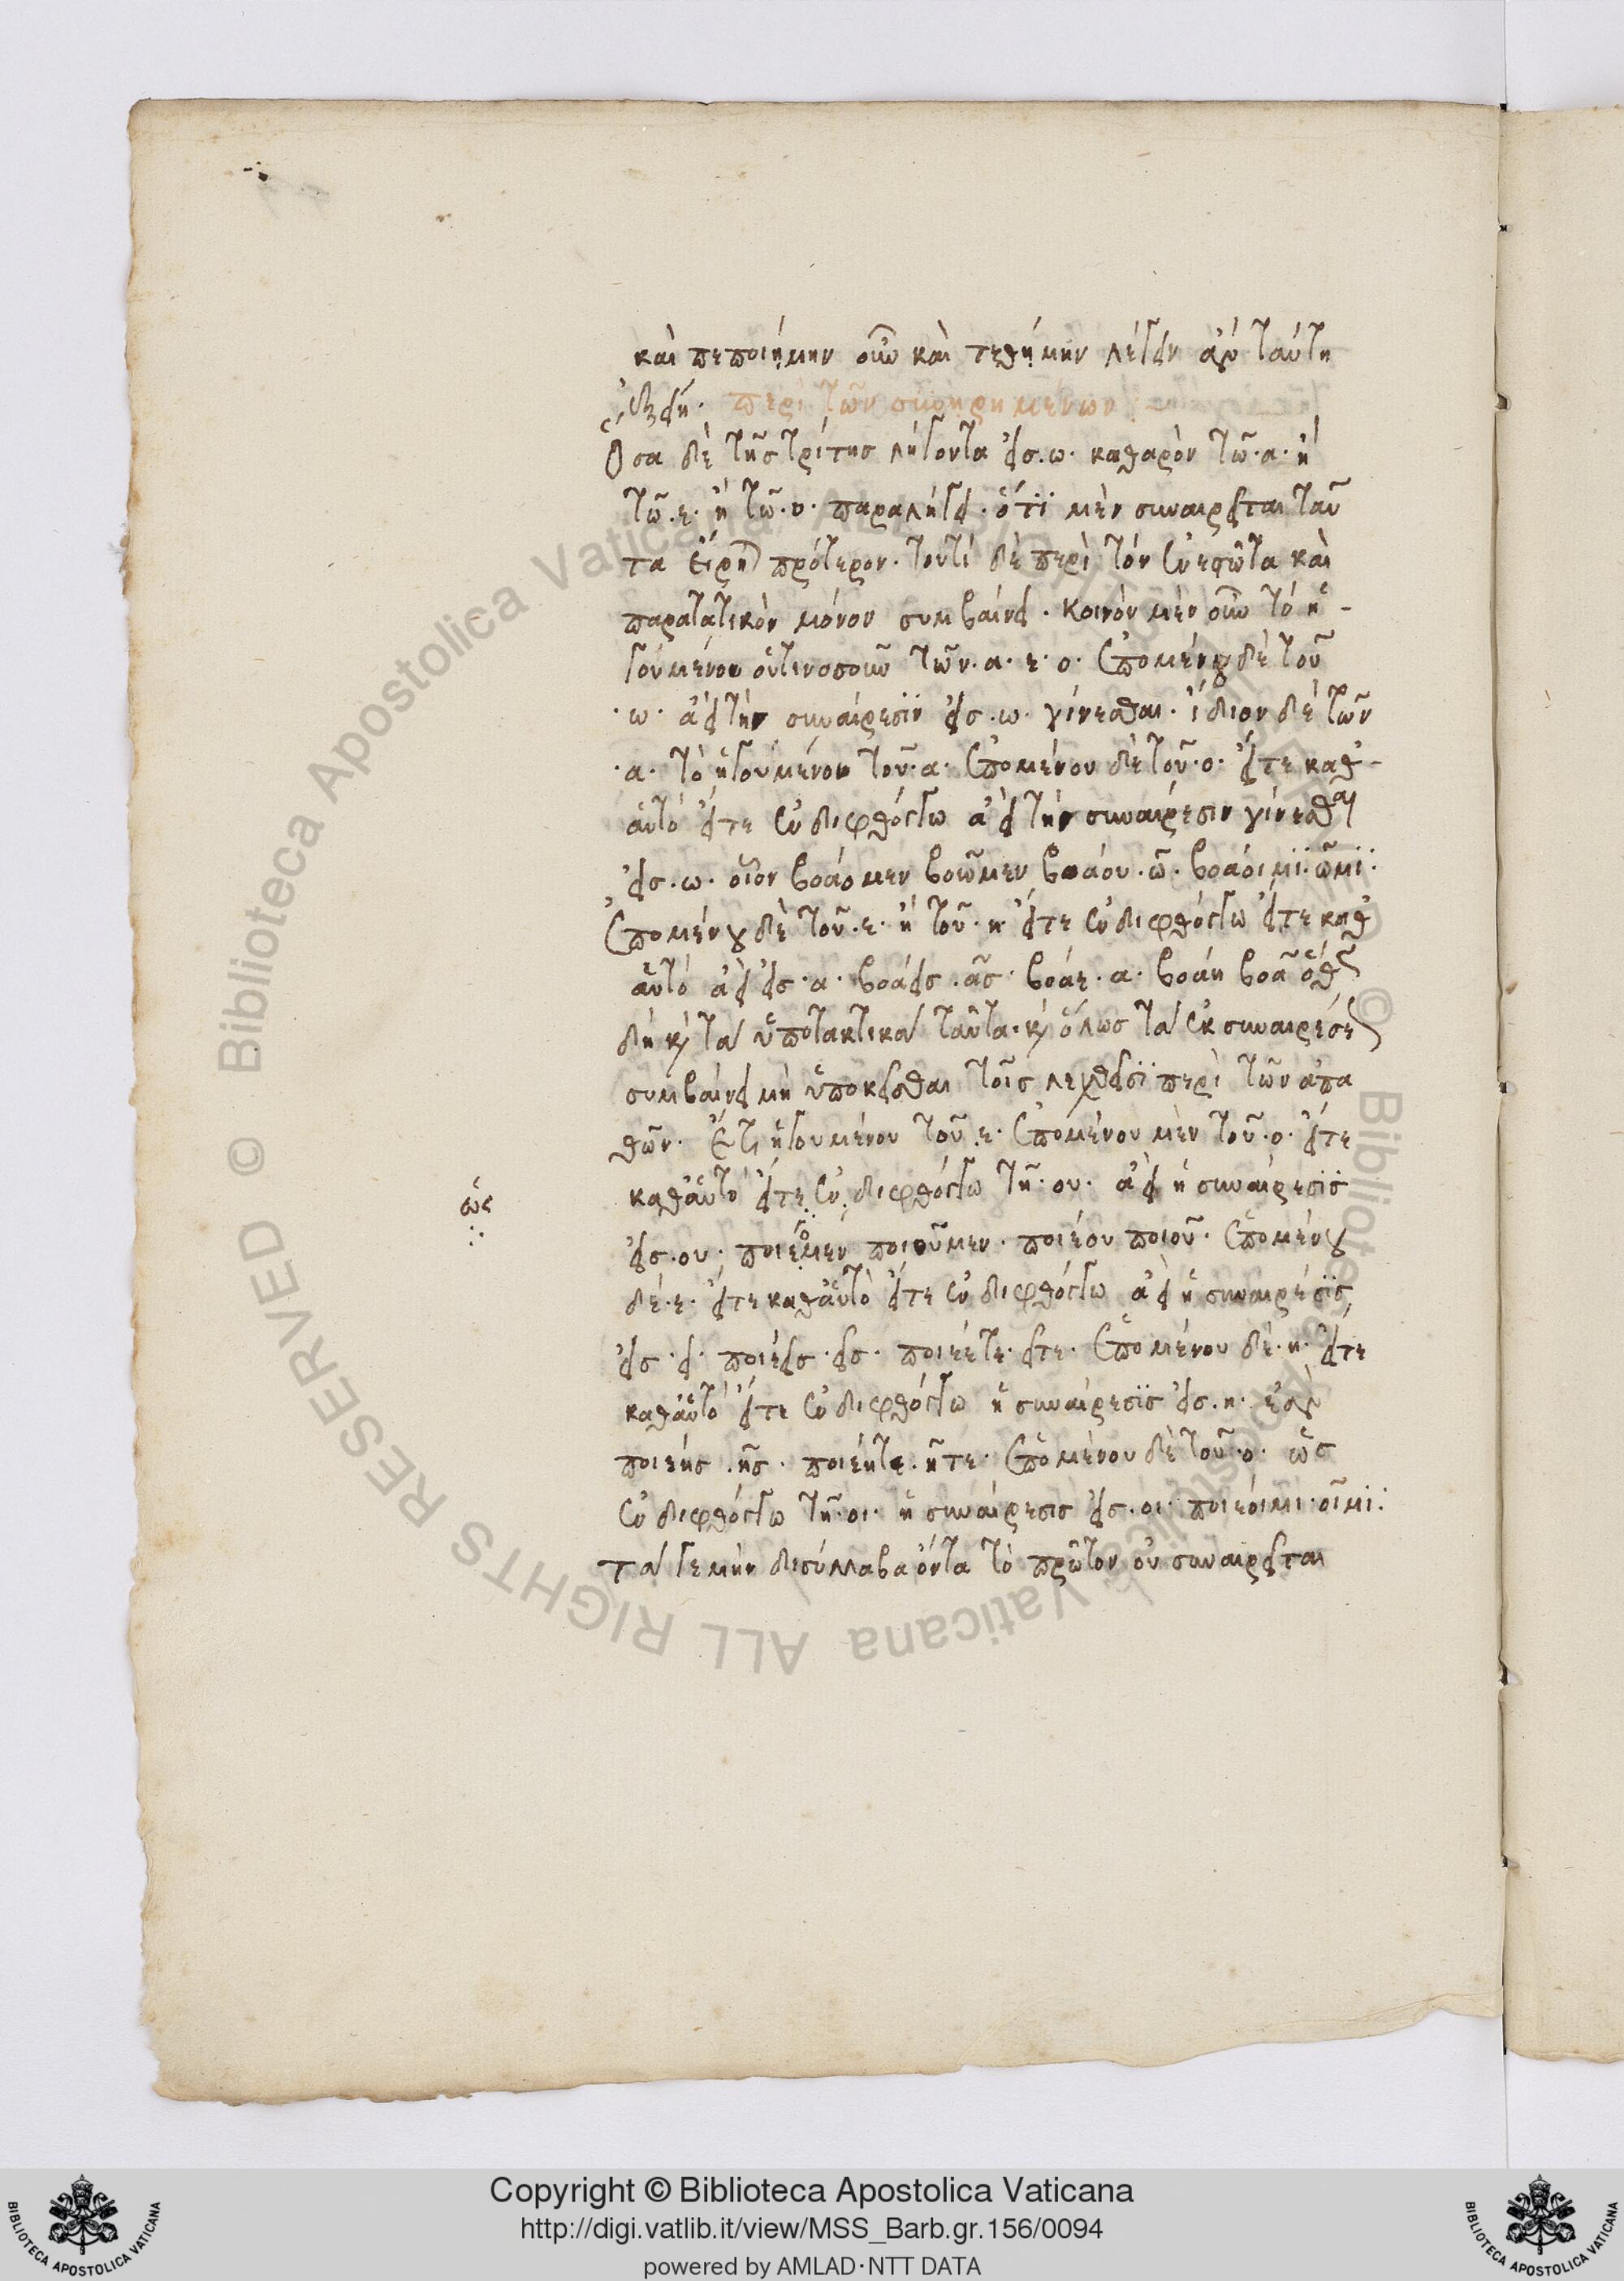 καὶ πεποιῄμην οὖν καὶ τεθῄμην λέγειν ἂν ταύτῃ
ἐνδεχῃ. περὶ τῶν συνῃρημένων :—
Ὅσα δὲ τῆς τρίτης λήγοντα εἰς .ω. καθαρὸν τῶ .α. ἢ
τῶ .ε. ἢ τῶ .ο. παραλήγει. ὅτι μὲν συναιρεῖται ταῦ
τα εἴρηται πρότερον. τουτὶ δὲ περὶ τὸν ἐνεστῶτα καὶ
παρατατικὸν μόνον συμβαίνει. κοινὸν μὲν οὖν τὸ ἡ-
γουμένου οὑτινοσοῦν τῶν .α. ε. ο. ἑπομένου δὲ τοῦ
.ω. ἀεὶ τὴν συναίρεσιν εἰς .ω. γίνεσθαι. ἴδιον δὲ τῶν
.α. τὸ ἡγουμένου τοῦ .α. ἑπομένου δὲ τοῦ .ο. εἴτε καθ-
αὑτὸ εἴτε ἐν διφθόγγω ἀεὶ τὴν συναίρεσιν γίνεσθαι
εἰς .ω. οἷον βοάομεν βοῶμεν βοάου .ῶ. βοάοιμι .ῶμι :
ἑπομένου δὲ τοῦ .ε. ἢ τοῦ .η. εἴτε ἐν διφθόγγω εἴτε καθ
αὑτὸ ἀεὶ εἰς .α. βοάεις .ᾶς. βοάε .α. βοάη βοᾶ ὅθεν
δὴ κ τὰ ὑποτακτικὰ ταῦτα. κ ὅλως τὰ ἐκ συναιρέσεως
συμβαίνει μὴ ὑποκεῖσθαι τοῖς λεχθεῖσι περὶ τῶν ἀπα
θῶν. Ἔτι ἡγουμένου τοῦ .ε. ἑπομένου μὲν τοῦ .ο. εἴτε
καθαὑτὸ εἴτε ἐν διφθόγγω τῆ .ου. ἀεὶ ἡ συναίρεσις
ὡς
εἰς .ου. ποιέομεν ποιοῦμεν. ποιέου ποιοῦ. ἑπομένου
δέ .ε. εἴτε καθαὑτὸ εἴτε ἐν διφθόγγω ἀεὶ ἡ συναίρεσις
εἰς .ει. ποιέεις .εῖς. ποιέετε .εῖτε. ἑπομένου δέ .η. εἴτε
καθαὑτὸ εἴτε ἐν διφθόγγω ἡ συναίρεσις εἰς .η. ἐὰν
ποιέης .ῆς. ποιέητε .ῆτε. ἑπομένου δὲ τοῦ .ο. ὡς
ἐν διφθόγγω τῆ .οι. ἡ συναίρεσις εἰς .οι. ποιέοιμι .οῖμι :
τὰ γε μὴν δισύλλαβα ὄντα τὸ πρῶτον οὐ συναιρεῖται
Copyright © Biblioteca Apostolica Vaticana
http://digi.vatlib.it/view/MSS_Barb.gr.156/0094
powered by AMLAD·NTT DATA